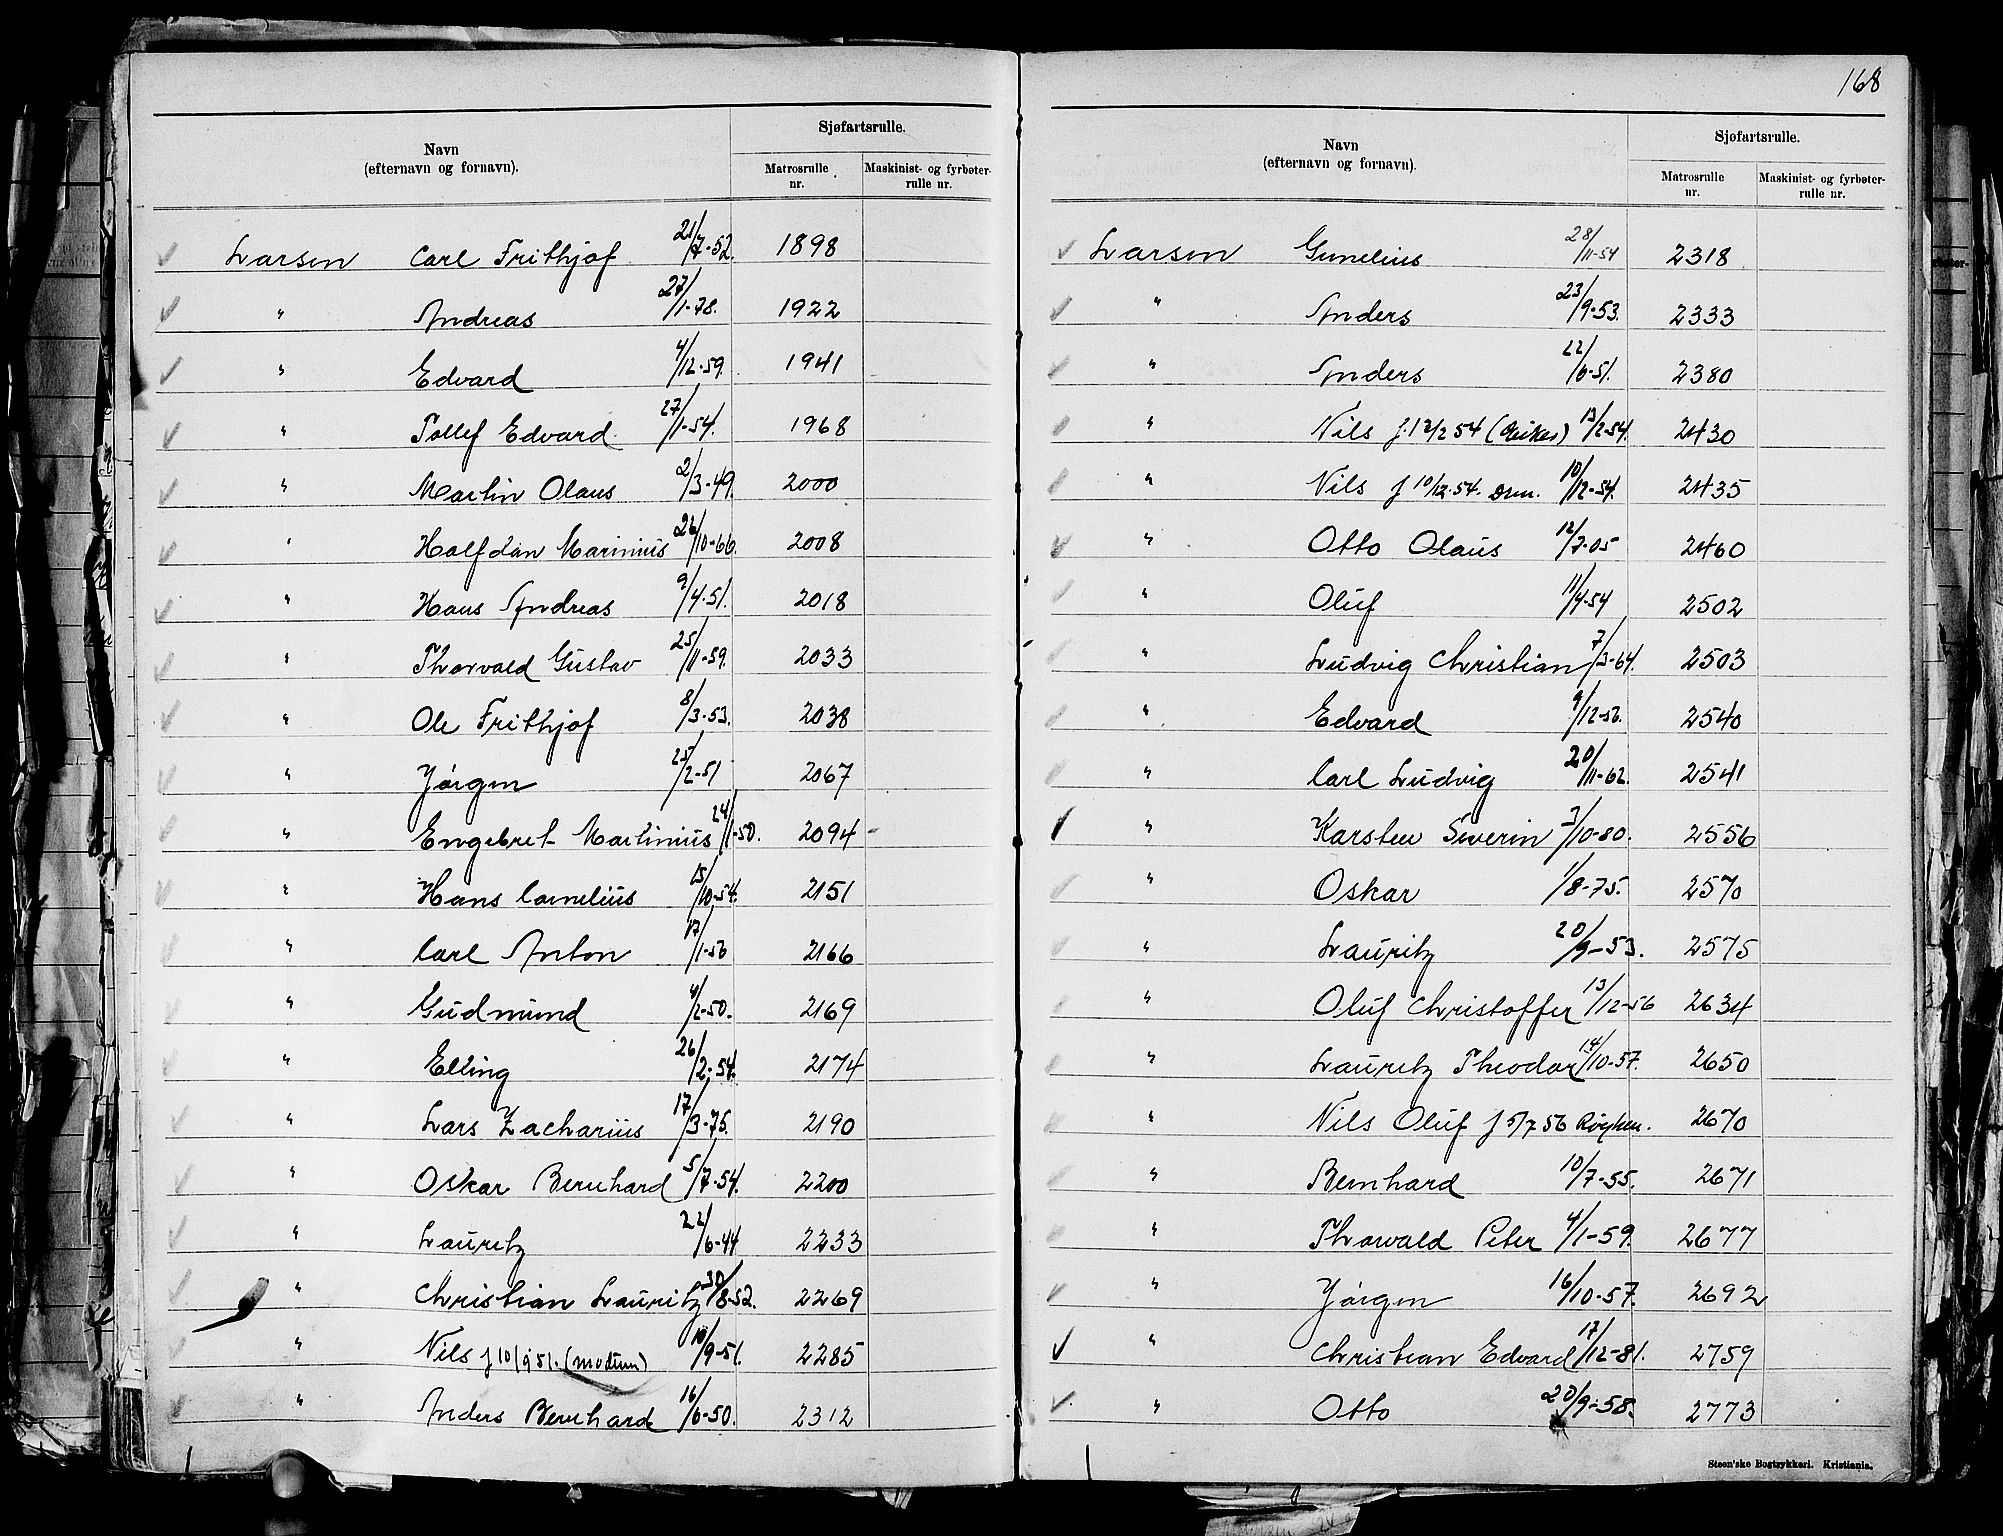 168
Navn
(efternavn og fornavn).
Sjøfartsrulle.
Matrosrulle nr.
Maskinist- og fyrbøter-rulle nr.
Larsen Carl Frithjof 21/7-52. 1898
" Andreas 27/1-78. 1922
" Edvard 4/12-59. 1941
" Tollef Edvard 27/1-54. 1968
" Martin Olaus 2/3-49. 2000
" Halfdan Marinius 26/10-66. 2008
" Hans Andreas 9/4-51. 2018
" Thorvald Gustav 25/11-59. 2033
" Ole Frithjof 8/3-53. 2038
" Jørgen 25/2-51 2067
" Engebret Martinius 24/11-50. 2094
" Hans Cornelius 15/10-54. 2151
" Carl Anton 17/1-56 2166
" Gudmund 4/2-50. 2169
" Elling 26/2-54. 2174
" Lars Zacharius 17/3-75. 2190
" Oskar Bernhard 5/7-54. 2200
" Lauritz 22/6-44 2233
" Christian Lauritz 30/8-52. 2269
" Nils f 10/9 51. (Modum) 10/9-51. 2285
" Anders Bernhard 16/6-50. 2312
Navn
(efternavn og fornavn).
Sjøfartsrulle.
Matrosrulle nr.
Maskinist- og fyrbøter-rulle nr.
Larsen Gunelius 28/11-54 2318
" Anders 23/9-53. 2333
" Anders 22/6-51. 2380
" Nils f. 13/2 54 13/2-54. 2430
" Nils f 10/12-54. Drm. 10/12-54. 2435
" Otto Olaus 12/7-05 2460
" Oluf 11/4-54 2502
" Ludvig Christian 7/3-64. 2503
" Edvard 9/12-56. 2540
" Carl Ludvig 20/11-62. 2541
" Karsten Severin 3/10-80. 2556
" Oskar 1/8-75. 2570
" Lauritz 20/9-53. 2575
" Oluf Christoffer 13/12-56 2634
" Lauritz Theodor 14/10-57. 2650
" Nils Oluf f 5/7 56 Røyken. 2670
" Bernhard 10/7-55. 2671
" Thorvald Peter 4/1-59. 2677
" Jørgen 16/10-57. 2692
" Christian Edvard 17/12-81. 2759
" Otto 20/9-58. 2773
Steen'ske Bogtrykkeri. Kristiania.